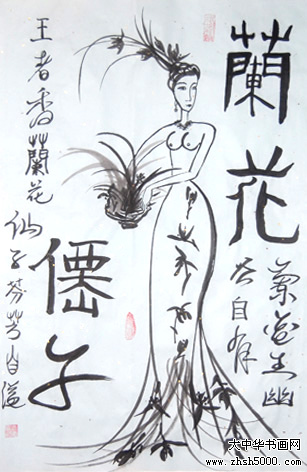 蘭花
生幽
谷自
僊子
王者香蘭花
仙子芬芳自溢
大中华书画网
www.zhsh5000.com